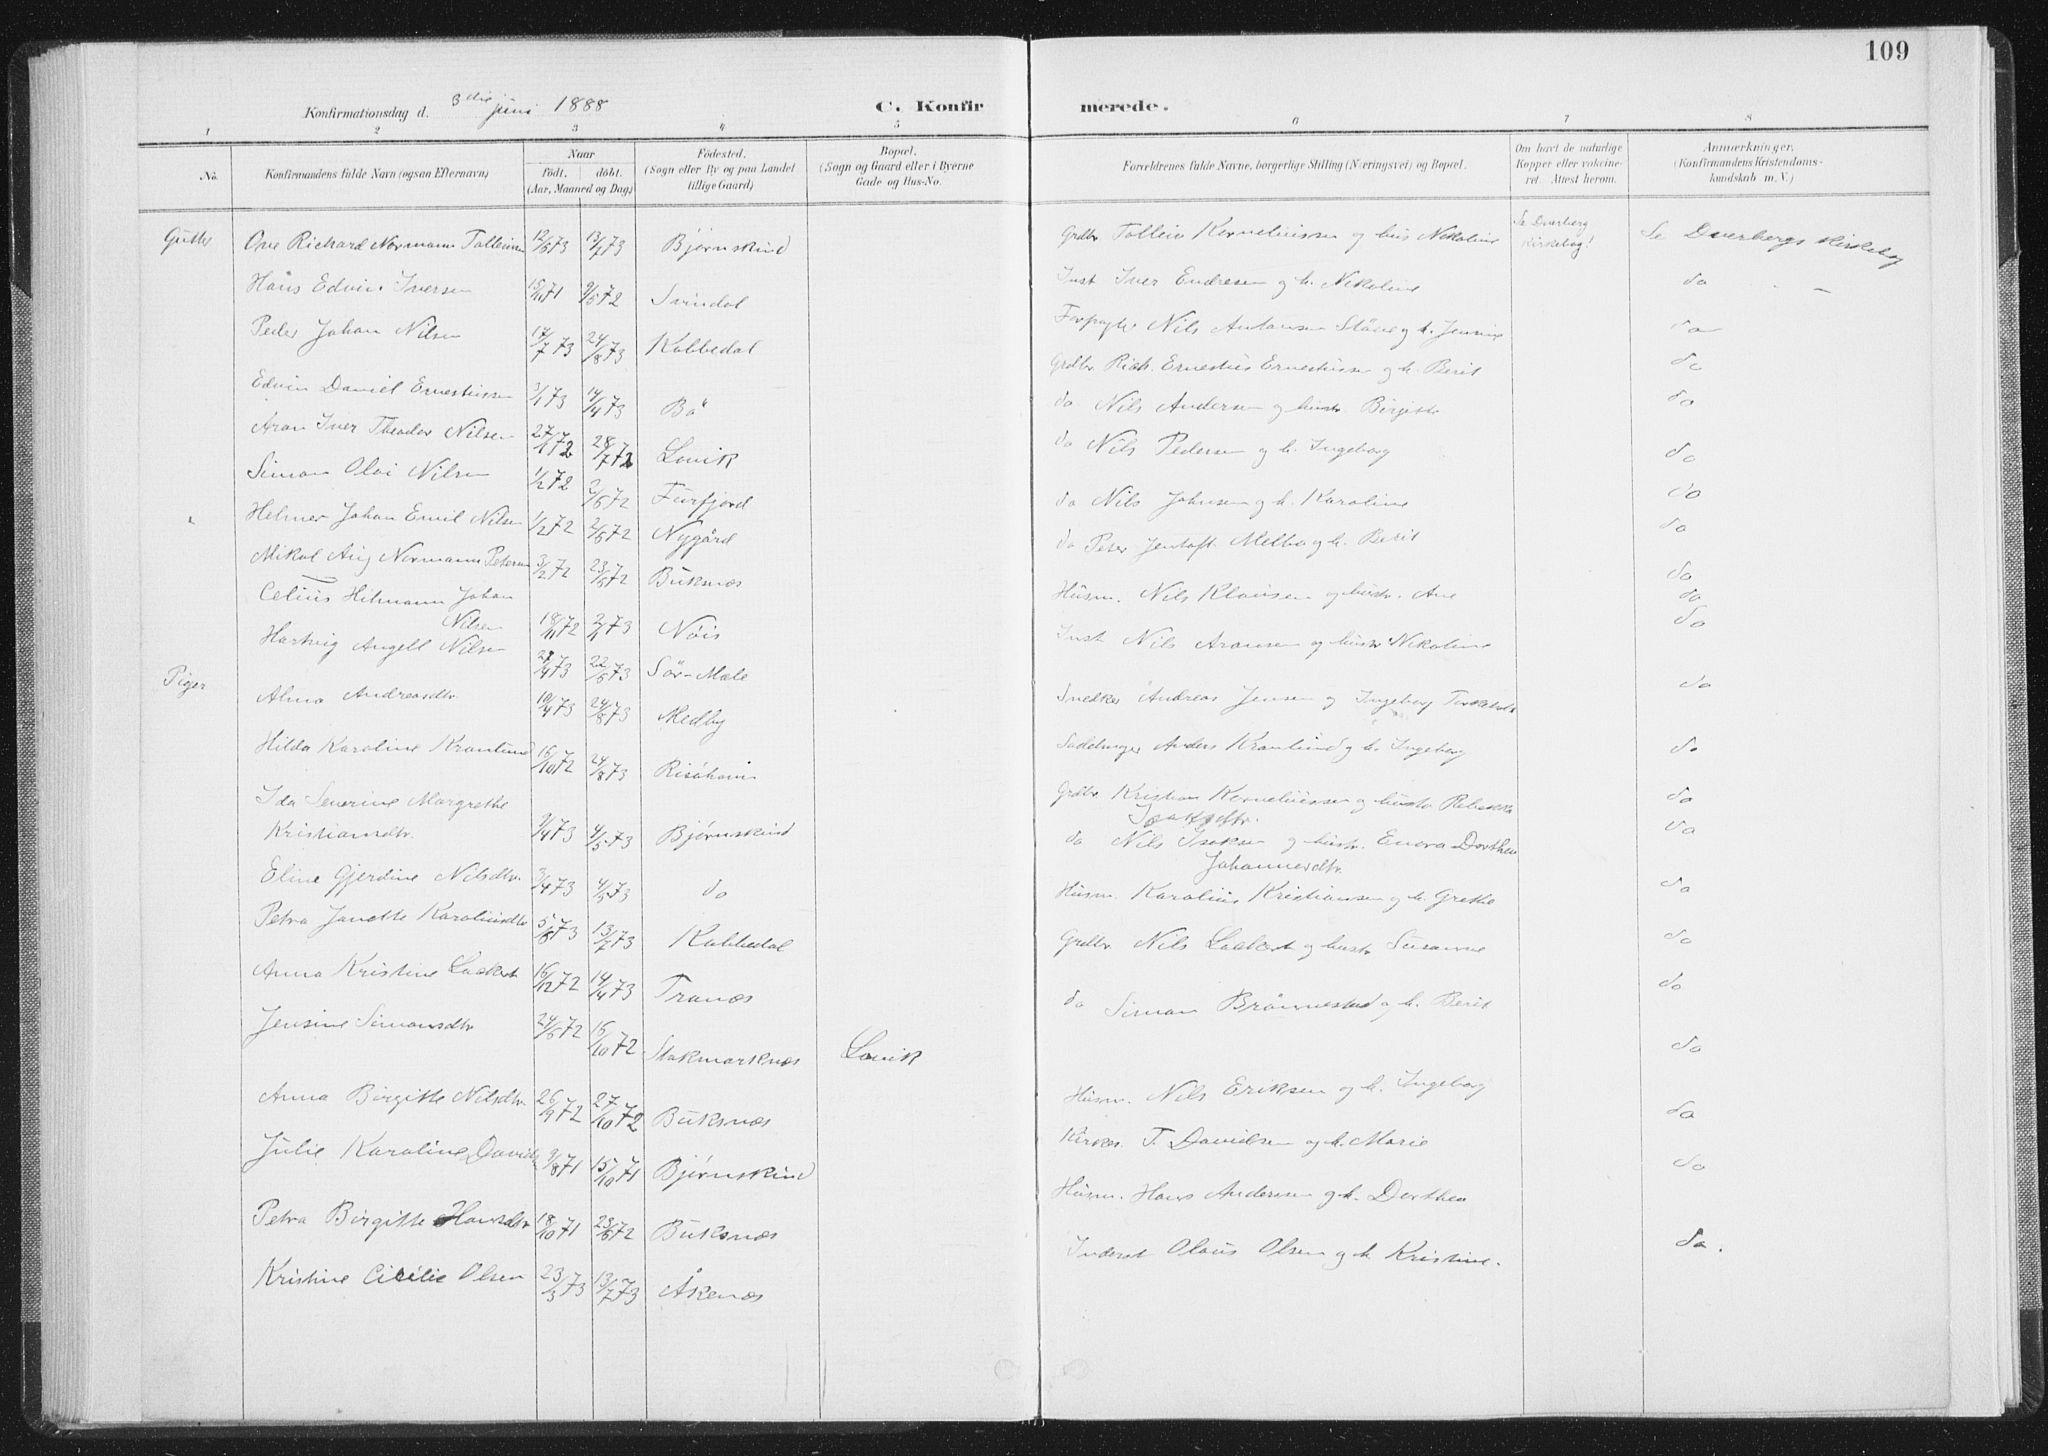 109
Konfirmationsdag d. 3die juni 1888
C. Konfirmerede.
1 2 3 4 5 6 7 8
No.
Konfirmandens fulde Navn (ogsaa Efternavn)
Naar
født. døbt.
(Aar, Maaned og Dag)
Fødested.
(Sogn eller By og paa Landet
tillige Gaard)
Bopæl.
(Sogn og Gaard eller i Byerne
Gade og Hus-No.
Forældrenes fulde Navne, borgerlige Stilling (Næringsvei) og Bopæl.
Om havt de naturlige
Kopper eller vaksine-
ret. Attest herom.
Anmærkninger.
(Konfirmandens Kristendoms-
kundskab m. V.)
Gutter Ove Richard Normann Tolleivsen 12/6 73 13/7 73 Bjørnskind Grdbr Tolleiv Korneliussen og hus Nikoline Se Dverberg Kirkebog! Se Dverbergs Kirkebog
Hans Edvin Iversen 15/11 71 9/5 72 Svindal Inst Iver Endresen og h. Nikoline do
Peder Johan Nilsen 17/7 73 24/8 73 Kobbedal Forpagter Nils Antonsen Støve og h. Jensine do
Edvin Daniel Ernestussen 3/1 73 14/4 73 Bø Grdbr Rich. Ernestus Ernestussen og h. Berit do
Aron Iver Theodor Nilsen 27/1 72 28/7 72 Lovik do Nils Andersen og hustr. Birgitte do
Simon Olai Nilsen 1/2 72 2/6 72 Furfjord do Nils Pedersen og h. Ingeborg do
Helmer Johan Emil Nilsen 1/2 72 2/6 72 Nygård do Nils Johnsen og h. Karoline do
Mikal Aug Normann Petersen 3/2 72 23/6 72 Buknæs do Peter Jentoft Melbo og h. Berit do
Celius Hilmann Johan
Nilsen 18/11 72 2/1 73 Nöis Husm. Nils Klausen og hustr. Ane do
Hartvig Angell Nilsen 27/4 73 22/6 73 Sör-Mæle Inst Nils Aronsen og hustr Nikoline do
Piger Alma Andreasdtr. 10/4 73 24/8 73 Medby Snedker Andreas Jensen og Ingeborg do
Hilda Karoline Kranlund 16/10 72 24/8 73 Risöhavn Sadelmager Anders Kranlund og h. Ingeborg do
Ida Severine Margrethe
Kristiansdtr. 9/4 73 4/5 73 Bjørnskind Grdbr Kristian Korneliussen og hustr Rebekka do
Eline Gjerdine Nilsdtr. 3/4 73 4/5 73 do do Nils Isaksen og hustr. Enora Dorthea
Johannesdtr. do
Petra Janette Karoliusdtr 5/8 73 13/7 73 Kobbedal Husm. Karolius Kristiansen og h. Grethe do
Anna Kristine Laekert 16/12 72 14/4 73 Tranæs Grdbr Nils Laekert og hustr Susanne do
Jensine Simonsdtr 24/6 72 16/10 72 Stokmarknæs Lovik do Simon Brönnestad og h. Berit do
Anna Birgitte Nilsdtr. 26/9 72 27/10 72 Buknæs Husm. Nils Eriksen og h. Ingeborg do
Julie Karoline 9/8 71 15/10 71 Bjørnskind Kirkes. T. Davidsen og h. Marie do
Petra Birgitte Hansdtr 18/10 71 23/6 72 Buksnæs Husm. Hans Andersen og h. Dorthea do
Kristine Cicilie Olsen 23/3 73 13/7 73 Åkenæs Inderst Olaus Olsen og h. Kristine. do.